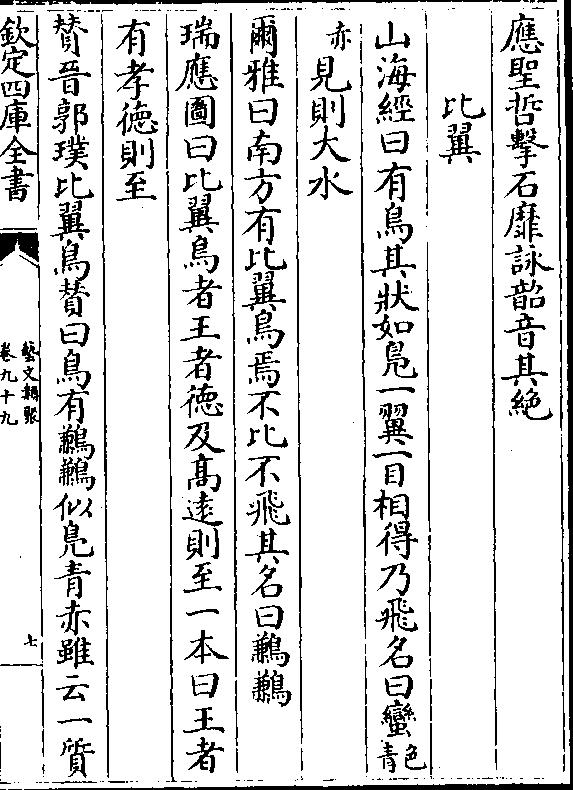 應聖哲擊石靡詠韶音其絶
比翼
山海經曰有鳥其狀如鳬一翼一目相得乃飛名曰蠻色青
赤見則大水
爾雅曰南方有比翼鳥焉不比不飛其名曰鶼鶼
瑞應圖曰比翼鳥者王者德及髙逺則至一本曰王者
有孝徳則至
賛晉郭璞比翼鳥賛曰鳥有鶼鶼似鳬青赤雖云一質
欽定四庫全書
藝文類聚
卷九十九
七